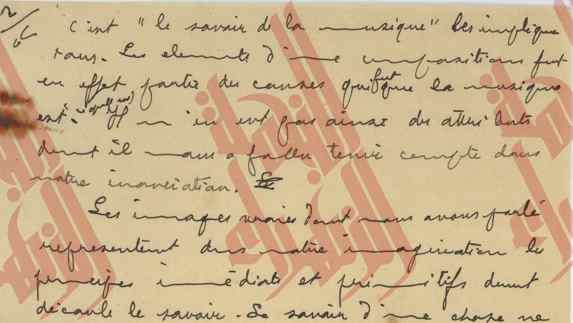 2/6
c'est "le savoir de la musique" les implique
rons. Les elements d'une composition font
en effet partie des causes qui font que la musique
est. Il n'en est pas ainsi des attributs
dont il nous a fallu tenir compte dans
notre
Les images vraies dont nous avons parlé
representent dans notre imagination les
principes immédiats et primitifs dont
découle le savoir. Le savoir d'une chose ne